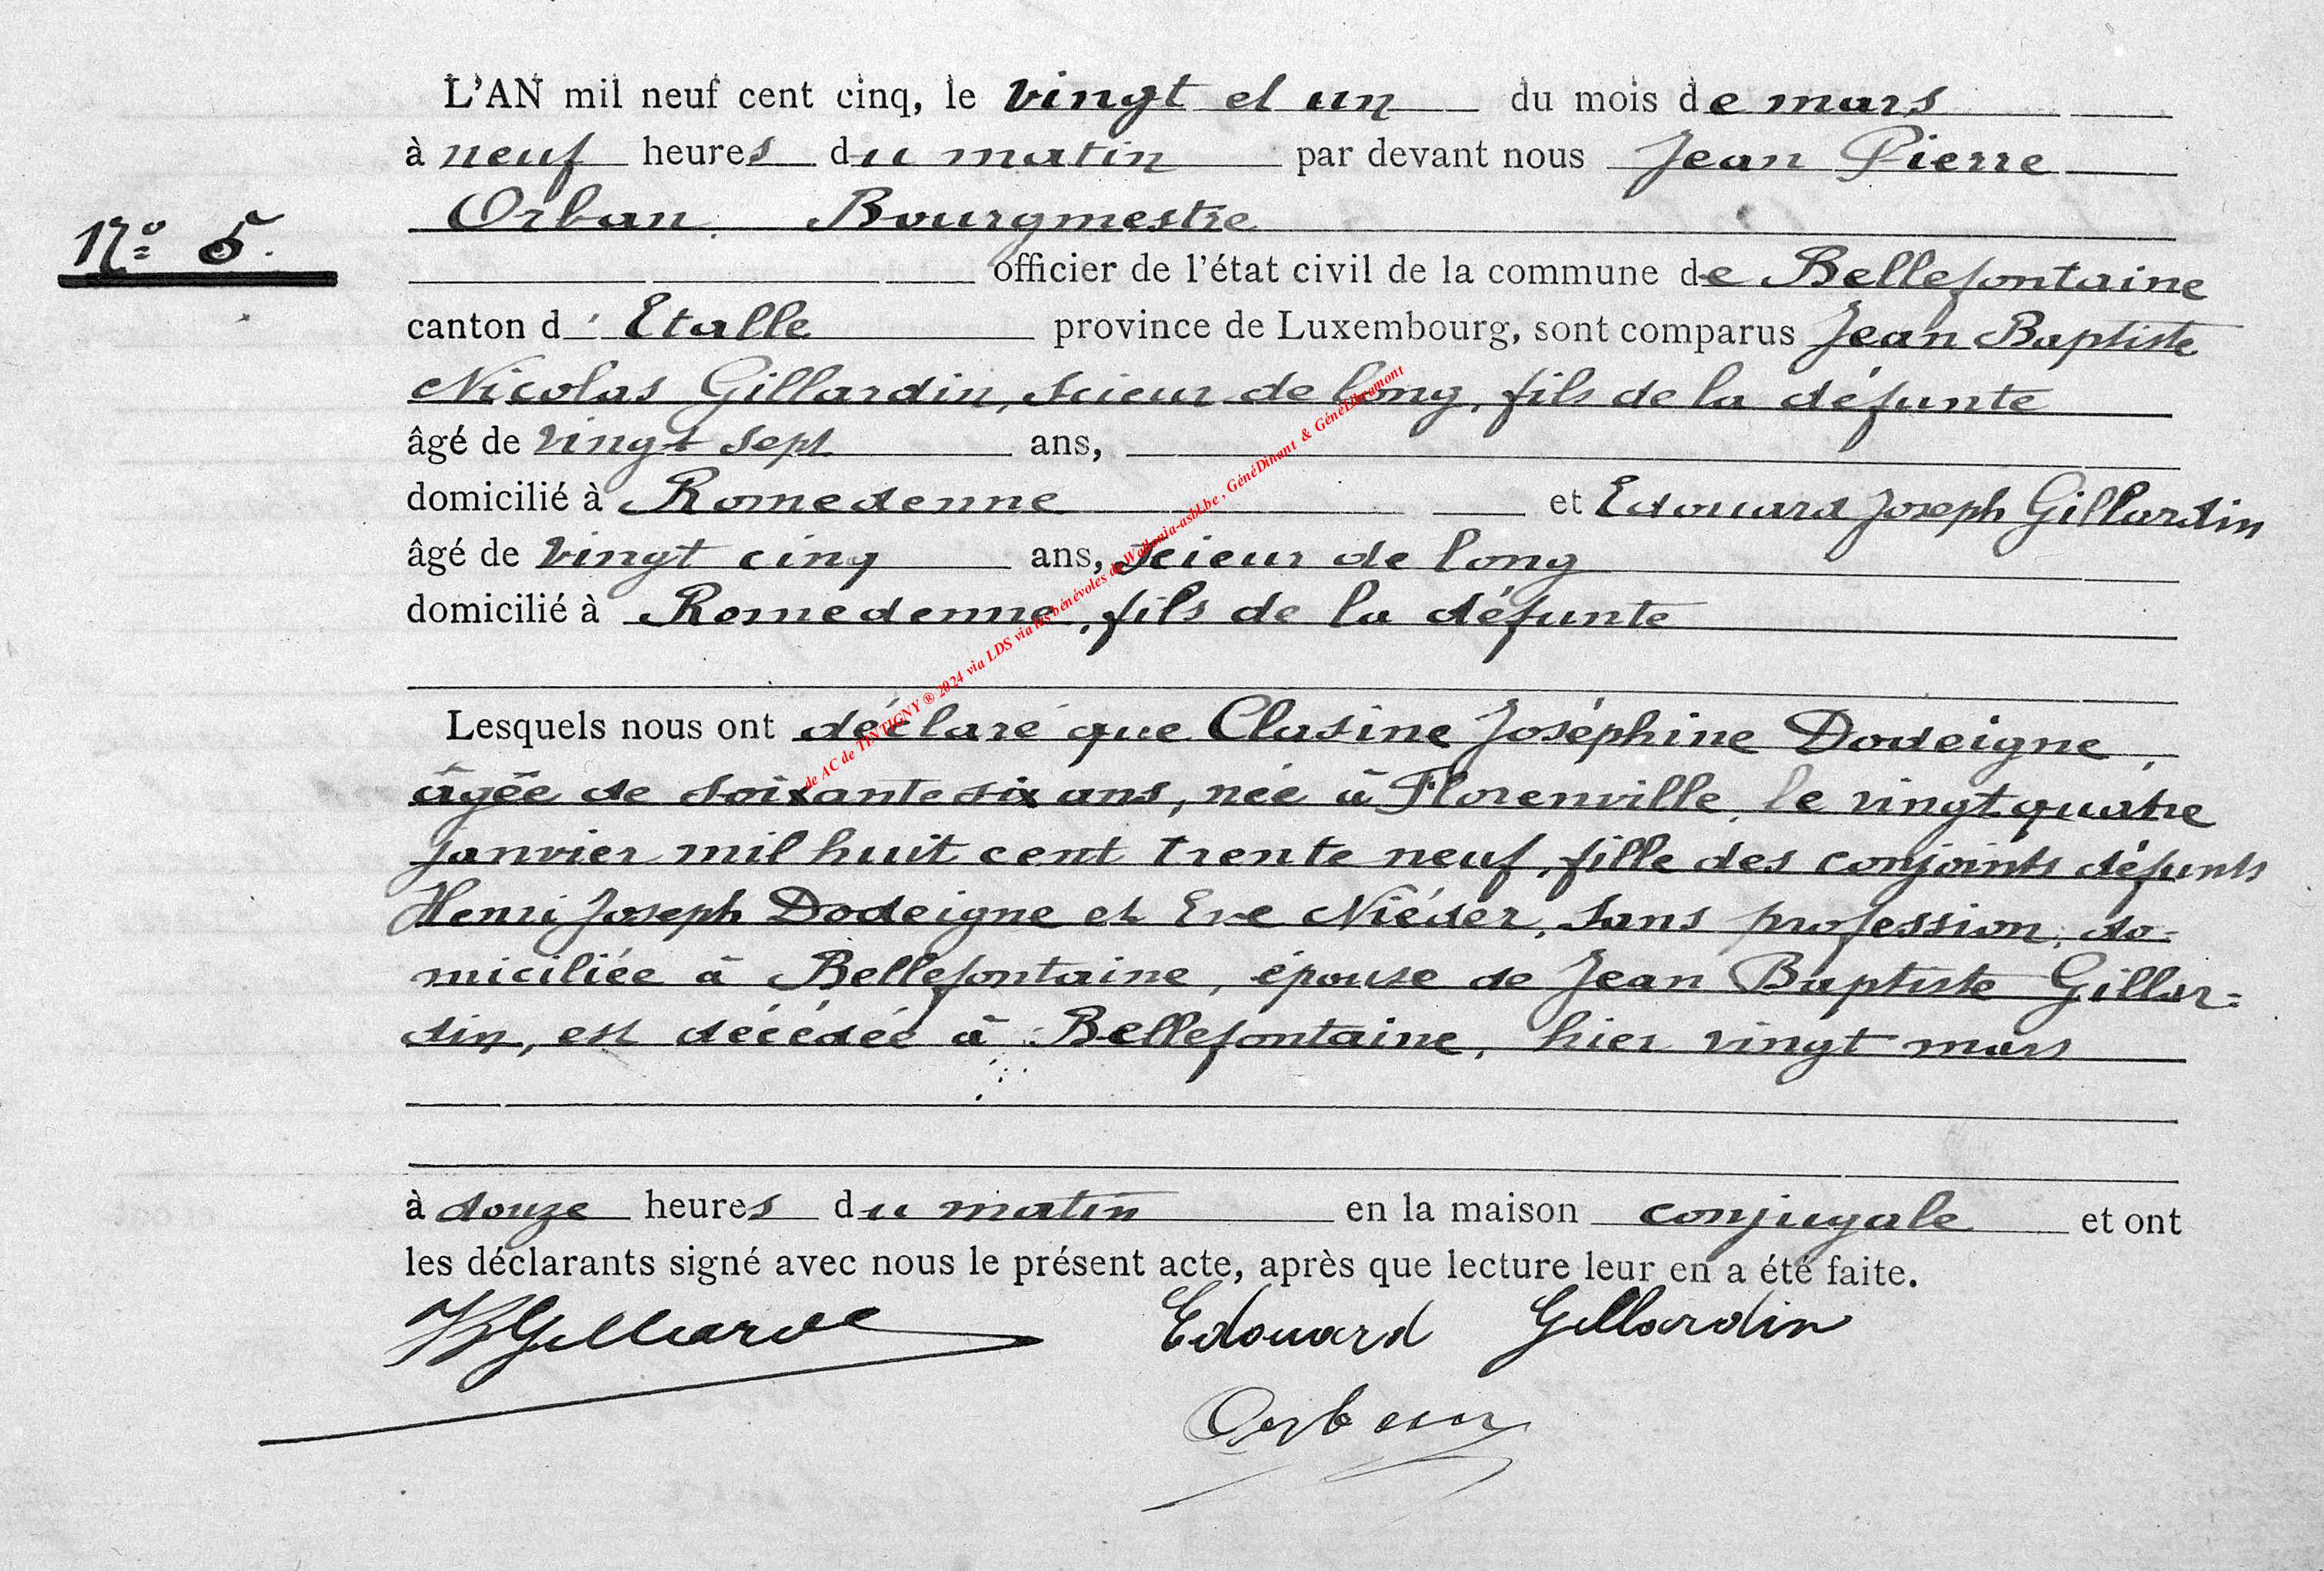 L'AN mil neuf cent cinq, le vingt et un du mois de mars
à neuf heures du matin par devant nous Jean Pierre
Orban, Bourgmestre
N° 5.
officier de l'état civil de la commune de Bellefontaine
canton d'Etalle province de Luxembourg, sont comparus Jean Baptiste
Nicolas Gillardin, scieur de long, fils de la défunte
âgé de vingt sept ans,
domicilié à Romedenne et Edouard Joseph Gillardin
âgé de vingt cinq ans, scieur de long
domicilié à Romedenne, fils de la défunte
Lesquels nous ont déclaré que Clasine Joséphine Dodeigne,
âgée de soixante six ans, née à Florenville, le vingt quatre
janvier mil huit cent trente neuf, fille des conjoints défunts
Henri Joseph Dodeigne et Eve Niéder, sans profession, do=
miciliée à Bellefontaine, épouse de Jean Baptiste Gillar=
din, est décédée à Bellefontaine, hier vingt mars
à douze heures du matin en la maison conjugale et ont
les déclarants signé avec nous le présent acte, après que lecture leur en a été faite.
Edouard Gillardin
Orban
de AC de TINTIGNY ® 2024 via LDS via les bénévoles de Wallonia-asbl.be , GénéDinant & GénéLibramont